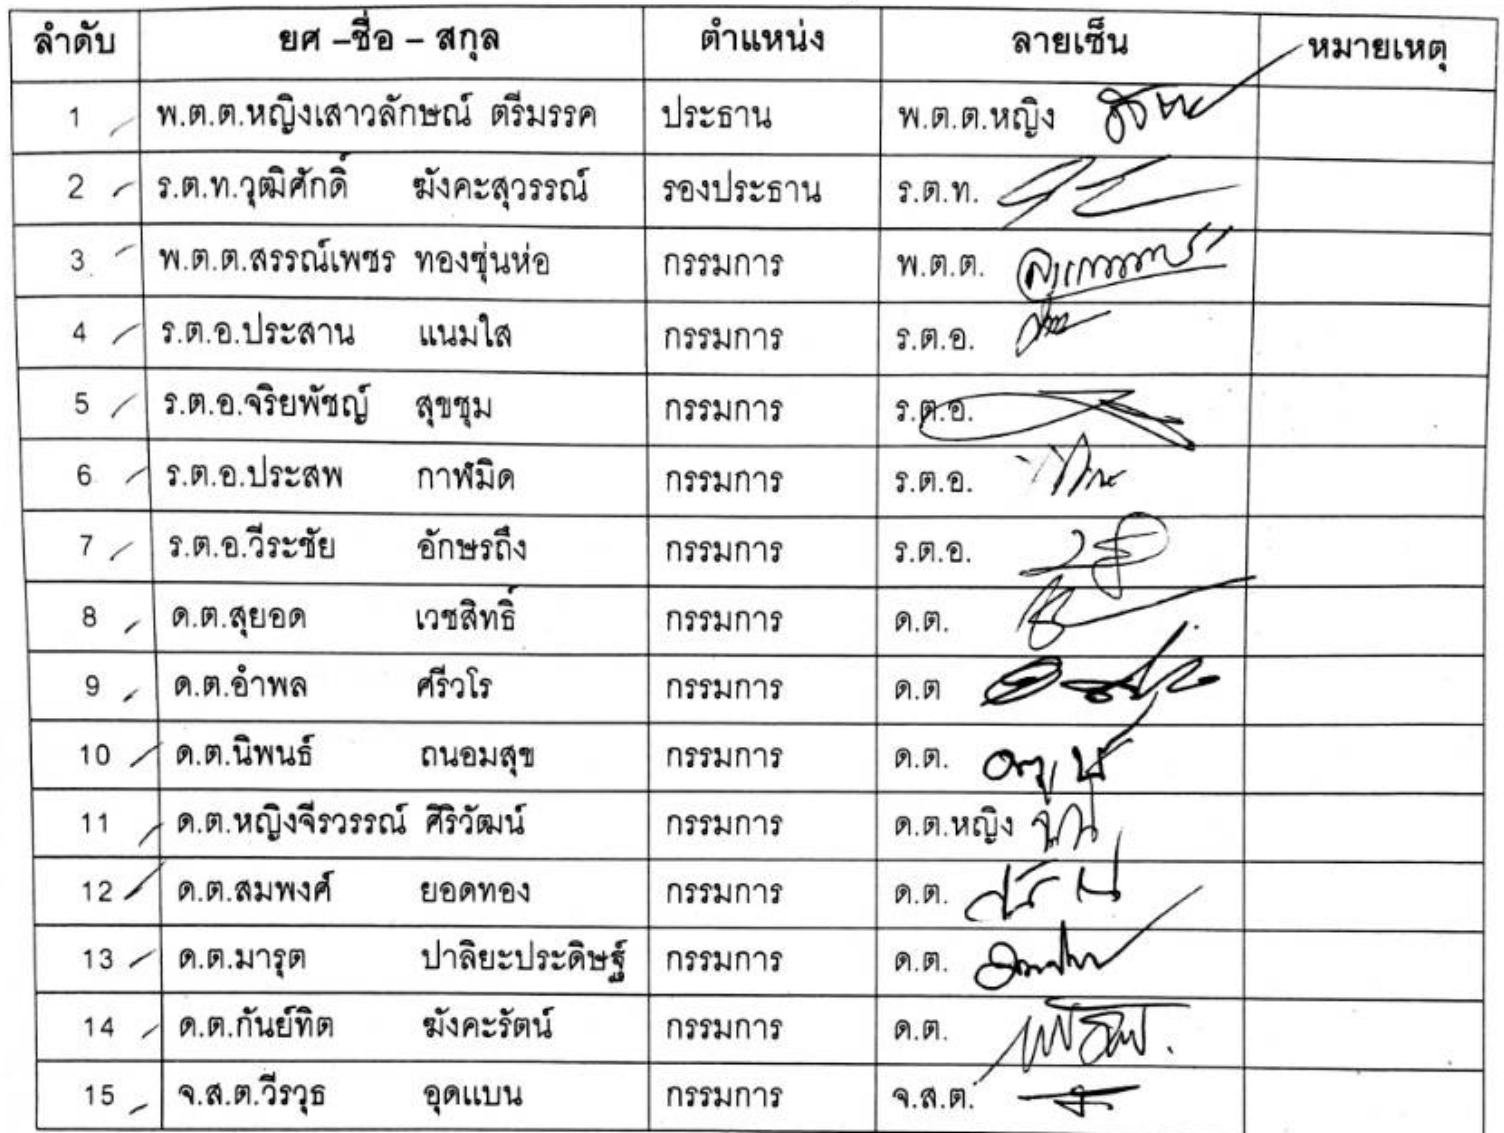 ลำดับ ยศ –ชื่อ – สกุล ตำแหน่ง ลายเซ็น หมายเหตุ
1 พ.ต.ต.หญิงเสาวลักษณ์ ตรีมรรค ประธาน พ.ต.ต.หญิง
2 ร.ต.ท.วุฒิศักดิ์ ฆังคะสุวรรณ์ รองประธาน ร.ต.ท.
3 พ.ต.ต.สรรณ์เพชร ทองชุ่นห่อ กรรมการ พ.ต.ต.
4 ร.ต.อ.ประสาน แนมใส กรรมการ ร.ต.อ.
5 ร.ต.อ.จริยพัชญ์ สุขชุม กรรมการ ร.ต.อ.
6 ร.ต.อ.ประสพ กาฬมิด กรรมการ ร.ต.อ.
7 ร.ต.อ.วีระชัย อักษรถึง กรรมการ ร.ต.อ.
8 ด.ต.สุยอด เวชสิทธิ์ กรรมการ ด.ต.
9 ด.ต.อำพล ศรีวโร กรรมการ ด.ต
10 ด.ต.นิพนธ์ ถนอมสุข กรรมการ ด.ต.
11 ด.ต.หญิงจีรวรรณ์ ศิริวัฒน์ กรรมการ ด.ต.หญิง
12 ด.ต.สมพงศ์ ยอดทอง กรรมการ ด.ต.
13 ด.ต.มารุต ปาลิยะประดิษฐ์ กรรมการ ด.ต.
14 ด.ต.กันย์ทิต ฆังคะรัตน์ กรรมการ ด.ต.
15 จ.ส.ต.วีรวุธ อุดแบน กรรมการ จ.ส.ต.